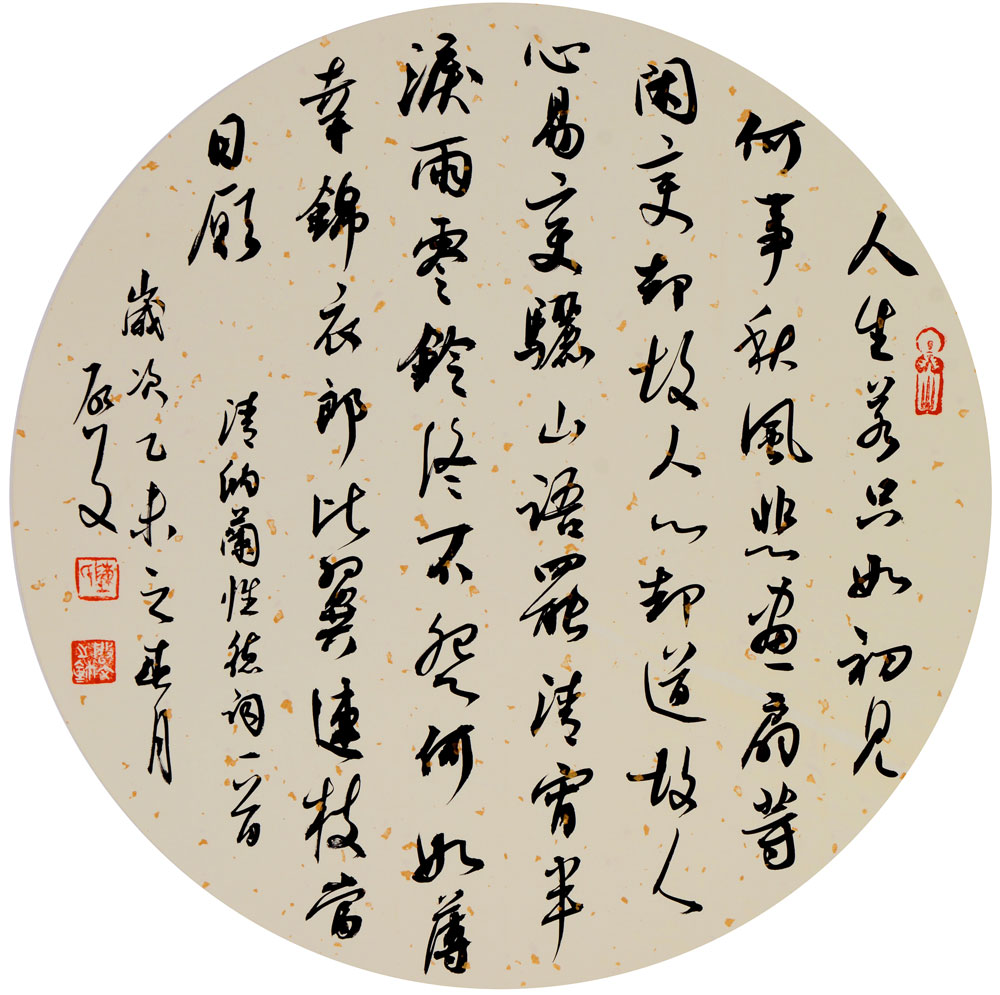 人生若只如初見
何事秋風悲畫扇等
闲变却故人心却道故人
心易变驪山語罷清宵半
淚雨零鈴終不怨何如薄
幸錦衣郎比翼連枝當
日願
清納蘭性德詞一首
歲次乙未之春月
啟文